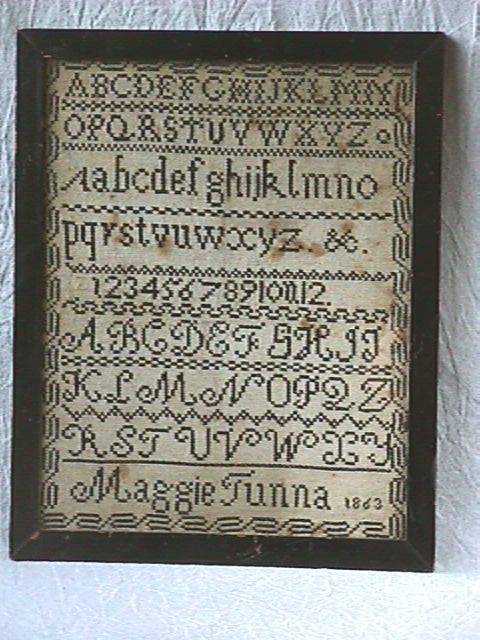 ABCDEFGHIJKLMN
OPQRSTUVWXYZ
aabcdefghijklmno
pqrstvuwxyz &.
123456789101112.
ABCDEFGHIJ
KLMNOPQZ
RSTUVWXY
Maggie Tunna 1863